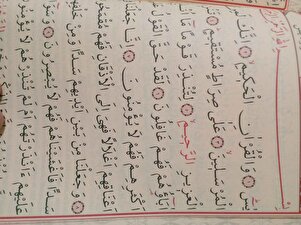 يٰسٓ ۝ وَالْقُرْاٰنِ الْحَكٖيمِ ۝
الْمُرْسَلٖينَ ۝ عَلٰى صِرَاطٍ مُسْتَقٖيمٍ ۝ تَنْزٖيلَ
الْعَزٖيزِ الرَّحٖيمِ ۝ لِتُنْذِرَ قَوْمًا مَٓا
اٰبَٓاؤُ۬هُمْ فَهُمْ غَافِلُونَ ۝ لَقَدْ حَقَّ الْقَوْلُ
اَكْثَرِهِمْ فَهُمْ لَا يُؤْمِنُونَ ۝ اِنَّا جَعَلْنَا
اَعْنَاقِهِمْ اَغْلَالًا فَهِيَ اِلَى الْاَذْقَانِ فَهُمْ
۝ وَجَعَلْنَا مِنْ بَيْنِ اَيْدٖيهِمْ سَدًّا وَمِنْ
سَدًّا فَاَغْشَيْنَاهُمْ فَهُمْ لَا يُبْصِرُونَ ۝
عَلَيْهِمْ ءَاَنْذَرْتَهُمْ اَمْ لَمْ تُنْذِرْهُمْ